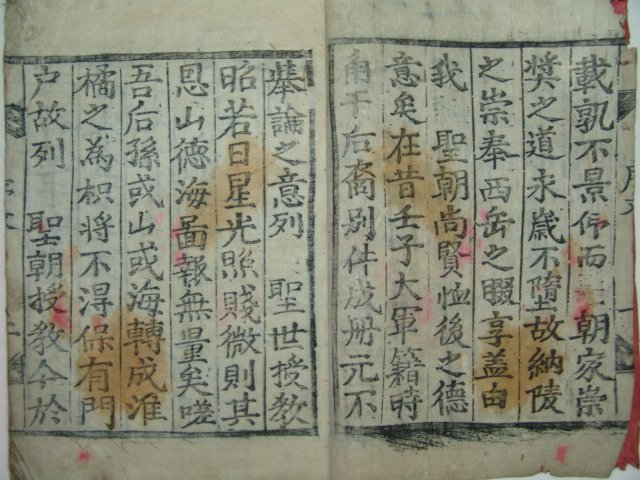 載孰不景仰而聖朝家崇
奬之道永歲不墮故納陵
之崇奉西岳之啜享盖由
我 聖朝尚賢恤後之德
意矣在昔壬子大軍籍時
角干后裔别件成册元不
擧論之意列 聖世授敎
昭若日星光照賤微則其
恩山德海啚報無量矣嗟
吾后孫或山或海轉成淮
橘之為枳將不淂保有門
户故列 聖朝授敎今於
序文